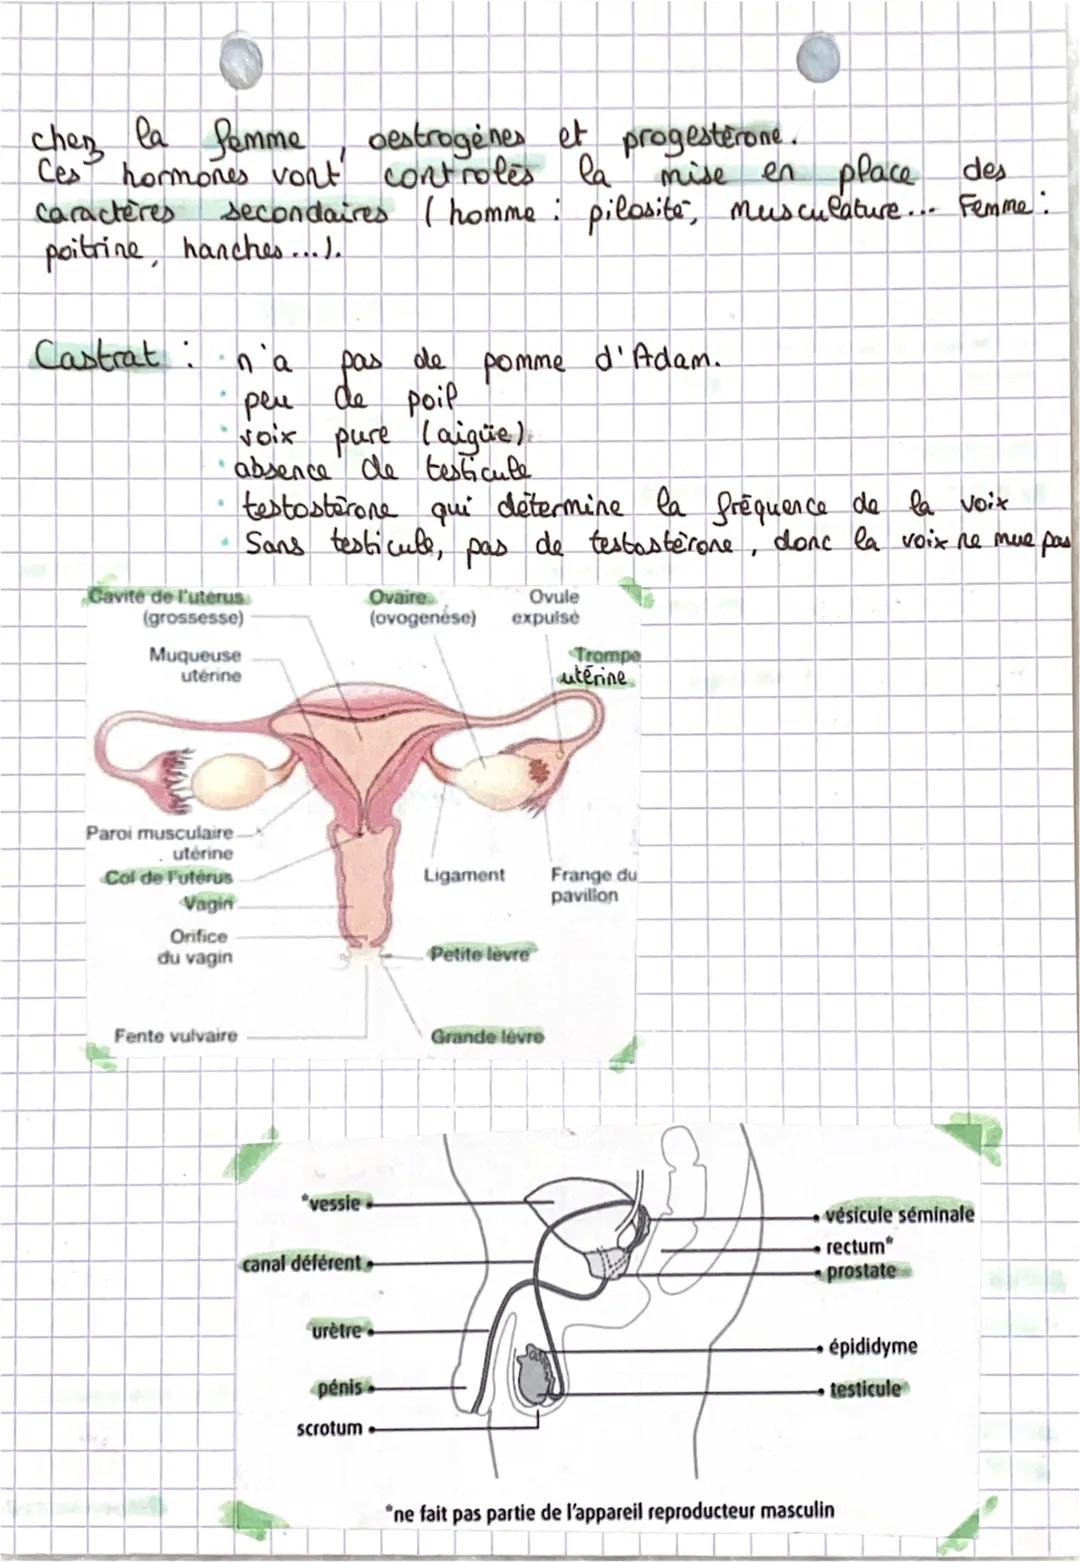 chez la femme, oestrogènes et progestérone.
Ces hormones vont contrôlés la mise en place des
caractères secondaires (homme : pilosité, musculature... Femme :
poitrine, hanches...).
Castrat : · n'a pas de pomme d'Adam.
· peu de poil
· voix pure (aigüe)
· absence de testicule
· testostérone qui détermine la fréquence de la voix
· Sans testicule, pas de testostérone, donc la voix ne mue pas
Cavité de l'utérus
(grossesse)
Ovaire
(ovogenèse)
Ovule
expulsé
Muqueuse
utérine
Trompe
utérine
Paroi musculaire
utérine
Col de l'utérus
Vagin
Ligament
Frange du
pavillon
Orifice
du vagin
Petite lèvre
Fente vulvaire
Grande lèvre
*vessie
vésicule séminale
canal déférent
rectum*
prostate
urètre
épididyme
pénis
testicule
scrotum
*ne fait pas partie de l'appareil reproducteur masculin